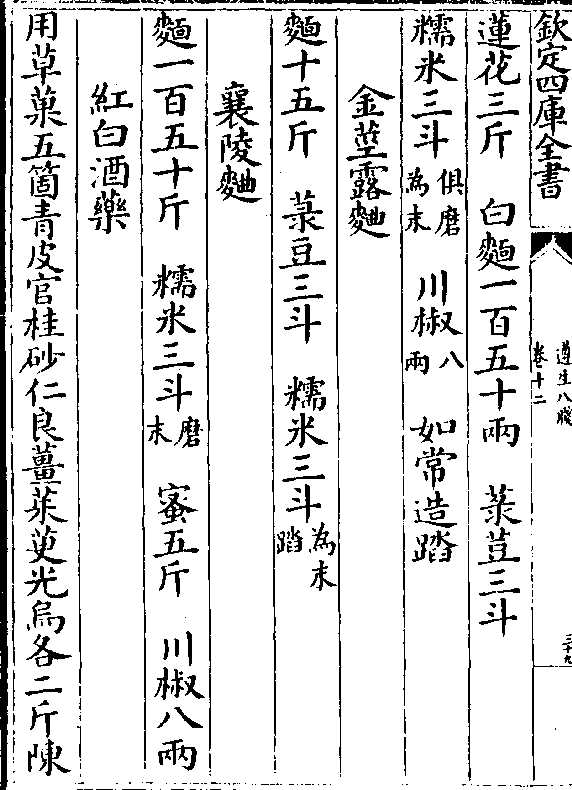 欽定四庫全書
遵生八牋
卷十二
三十九
蓮花三斤 白麵一百五十兩 菉荳三斗
糯米三斗俱磨為末 川椒八兩 如常造踏
金莖露麯
麵十五斤 菉豆三斗 糯米三斗為末踏
襄陵麯
麵一百五十斤 糯米三斗磨末 蜜五斤 川椒八兩
紅白酒藥
用草菓五箇青皮官桂砂仁良薑茱萸光烏各二斤陳